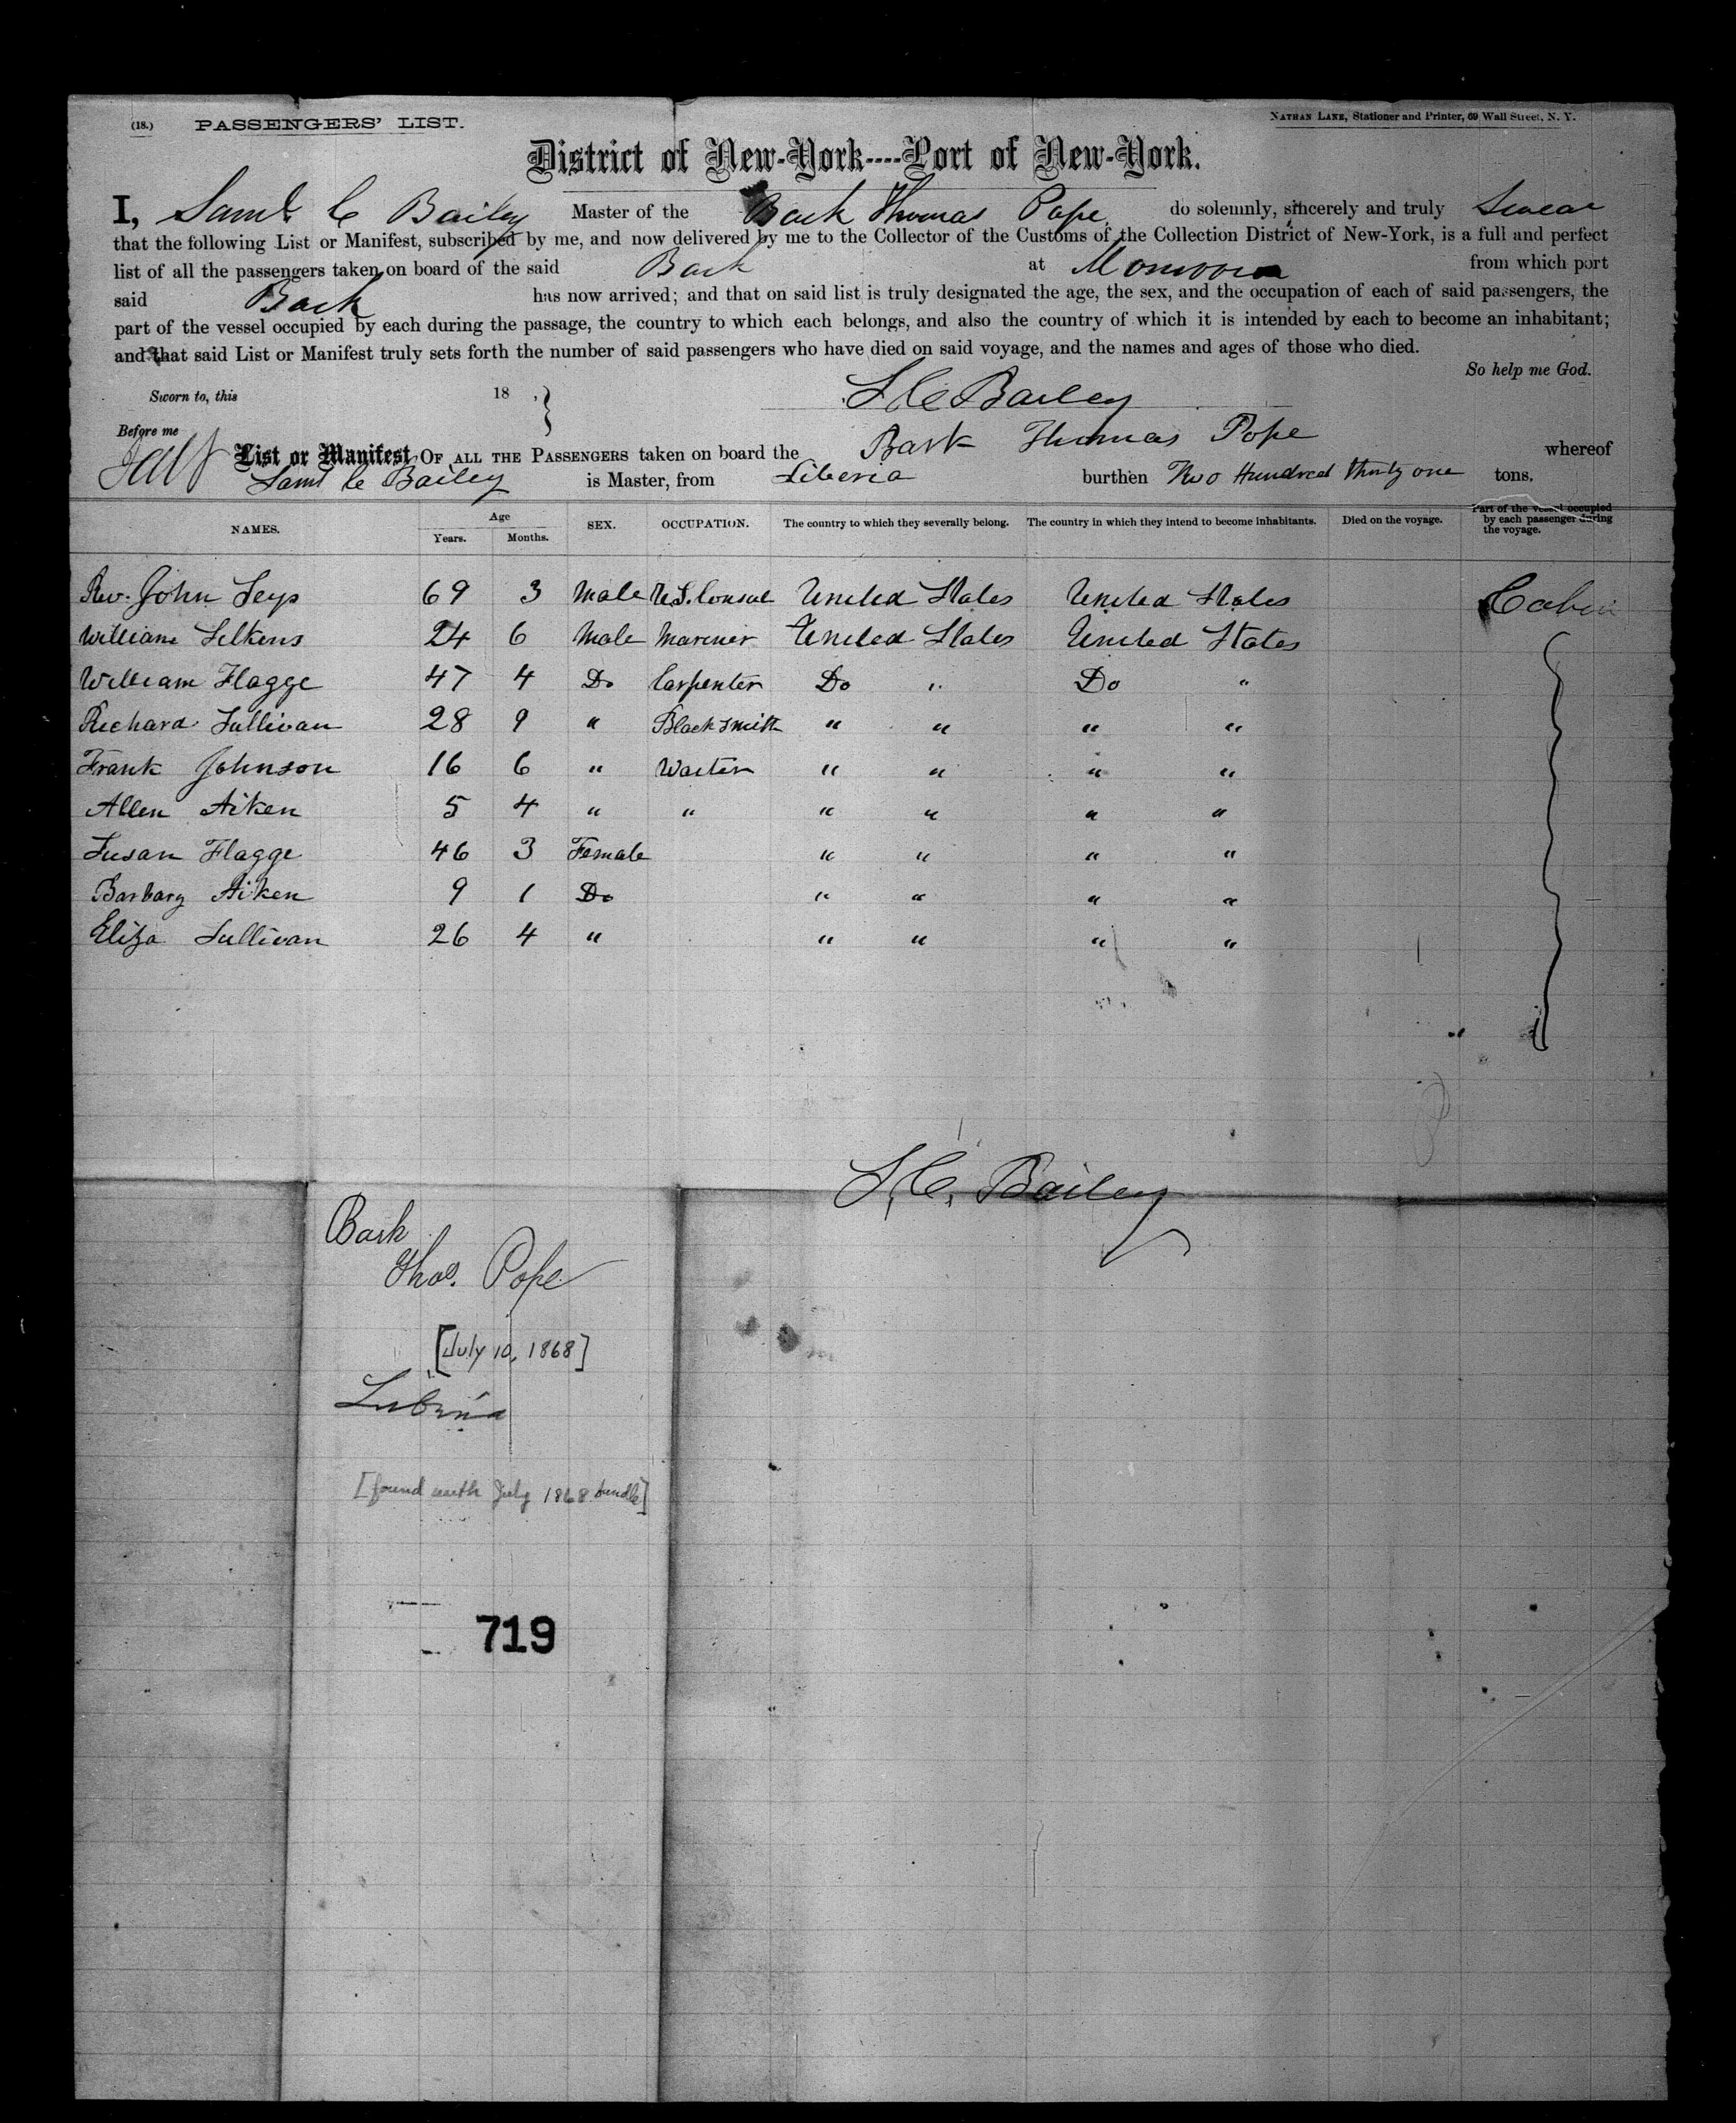 (18.) PASSENGERS' LIST.
NATHAN LANE, Stationer and Printer, 69 Wall Street, N. Y.
District of New-York----Port of New-York.
I, Saml. C Bailey Master of the Bark Thomas Pope do solemnly, sincerely and truly Swear
that the following List or Manifest, subscribed by me, and now delivered by me to the Collector of the Customs of the Collection District of New-York, is a full and perfect
list of all the passengers taken on board of the said Bark at Monrovia from which port
said Bark has now arrived; and that on said list is truly designated the age, the sex, and the occupation of each of said passengers, the
part of the vessel occupied by each during the passage, the country to which each belongs, and also the country of which it is intended by each to become an inhabitant;
and that said List or Manifest truly sets forth the number of said passengers who have died on said voyage, and the names and ages of those who died.
So help me God.
Sworn to, this 18 ,
S C Bailey
Before me
List or Manifest OF ALL THE PASSENGERS taken on board the Bark Thomas Pope whereof
Saml C Bailey is Master, from Liberia burthen Two Hundred thirty one tons.
NAMES. Age Years. Months. SEX. OCCUPATION. The country to which they severally belong. The country in which they intend to become inhabitants. Died on the voyage. Part of the vessel occupied by each passenger during the voyage.
Rev. John Seys 69 3 Male U.S. Consul United States United States Cabin
William Silkens 24 6 Male Mariner United States United States
William Flagge 47 4 Do Carpenter Do " Do "
Richard Sullivan 28 9 " Blacksmith " " " "
Frank Johnson 16 6 " Waiter " " " "
Allen Aiken 5 4 " " " " " "
Susan Flagge 46 3 Female " " " "
Barbary Aiken 9 1 Do " " " "
Eliza Sullivan 26 4 " " " " "
S. C. Bailey
Bark
Thos. Pope
[July 10, 1868]
Liberia
[found with July 1868 bundle]
719